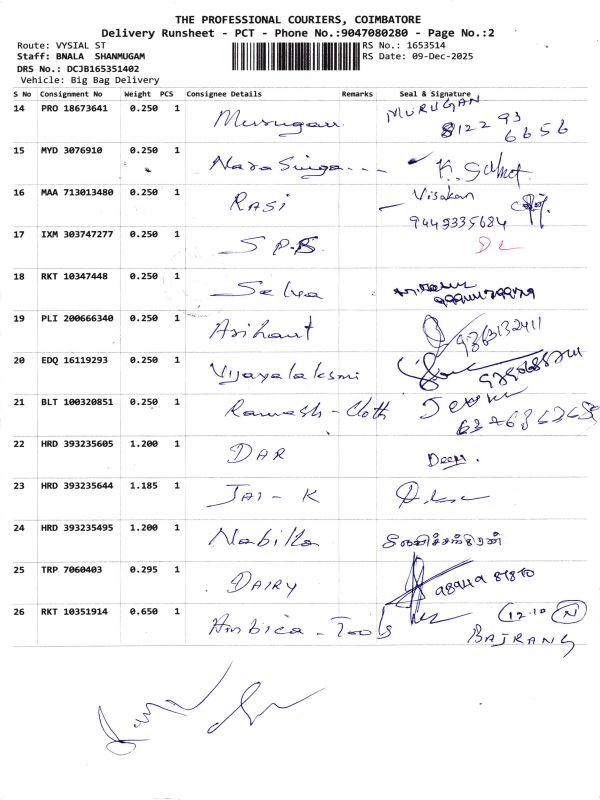 THE PROFESSIONAL COURIERS, COIMBATORE
Delivery Runsheet - PCT - Phone No.:9047080280 - Page No.:2
Route: VYSIAL ST RS No.: 1653514
Staff: BNALA SHANMUGAM RS Date: 09-Dec-2025
DRS No.: DCJB165351402
Vehicle: Big Bag Delivery
S No Consignment No Weight PCS Consignee Details Remarks Seal & Signature
14 PRO 18673641 0.250 1 Murugan MURUGAN
8122 93
6656
15 MYD 3076910 0.250 1 Narasinga...
16 MAA 713013480 0.250 1 RASI Visakan
9443335684
17 IXM 303747277 0.250 1 S P.B.
18 RKT 10347448 0.250 1 Selva
19 PLI 200666340 0.250 1 Arihant 9363132411
20 EDQ 16119293 0.250 1 Vijayalaksmi
21 BLT 100320851 0.250 1 Ramesh - Cloth
22 HRD 393235605 1.200 1 DAR Deepa.
23 HRD 393235644 1.185 1 JAI - K
24 HRD 393235495 1.200 1 Nabilla
25 TRP 7060403 0.295 1 DAIRY
26 RKT 10351914 0.650 1 Ambica - Tools 12.10 N
BAJRANG